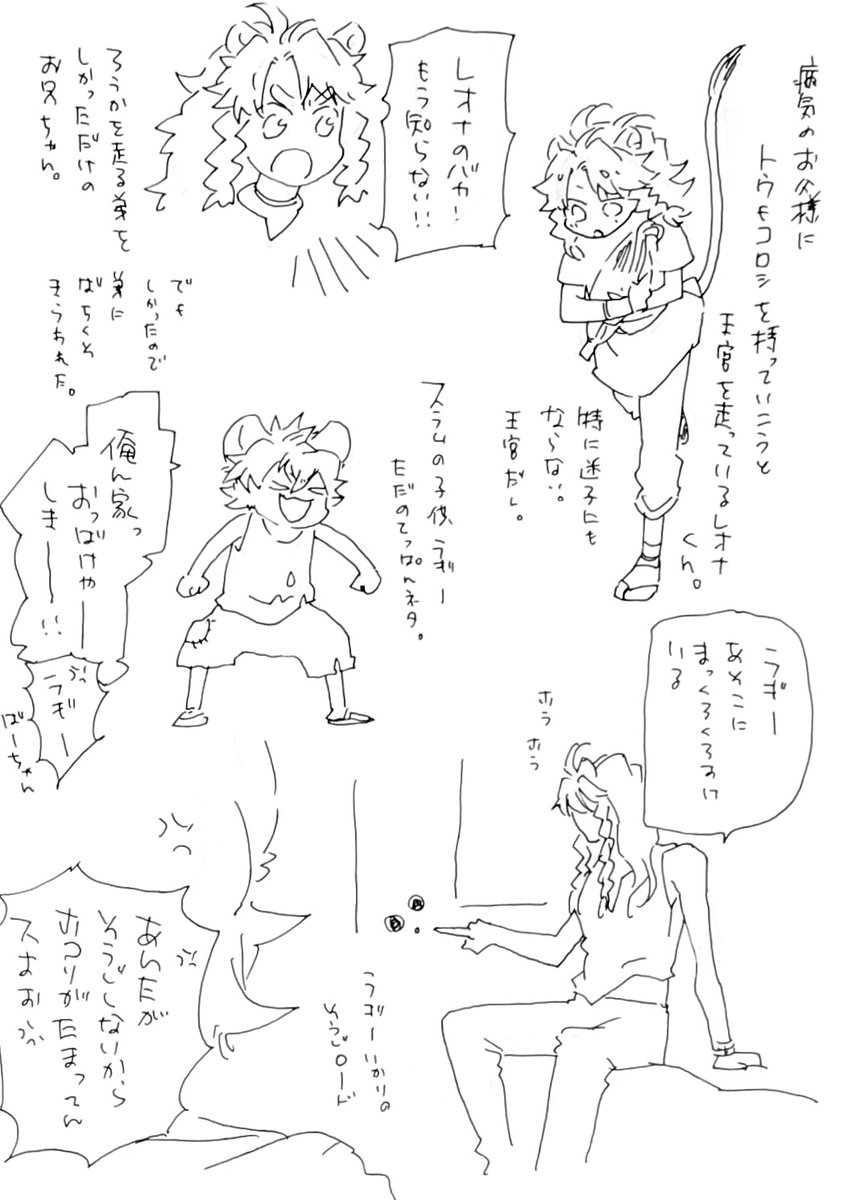 病気のお父様に
トウモコロシを持っていこうと
王宮を走っているレオナ
くん。
特に迷子にも
ならない。
王宮だし。
レオナのバカ!
もう知らない!!
ろうかを走る弟を
しかっただけの
お兄ちゃん。
でも
しかったので
弟に
ばちくそ
きらわれた。
スラムの子供、ラギー
ただのてっぱんネタ。
俺ん家っ
おっばけやー
しきーーー!!
ラギー
ばーちゃん
ラギー
あそこに
まっくろくろすけ
いる
ホラ
ホラ
ラギーいかりの
そうじロード
あんたが
そうじしないから
ホコリがたまってん
スよお